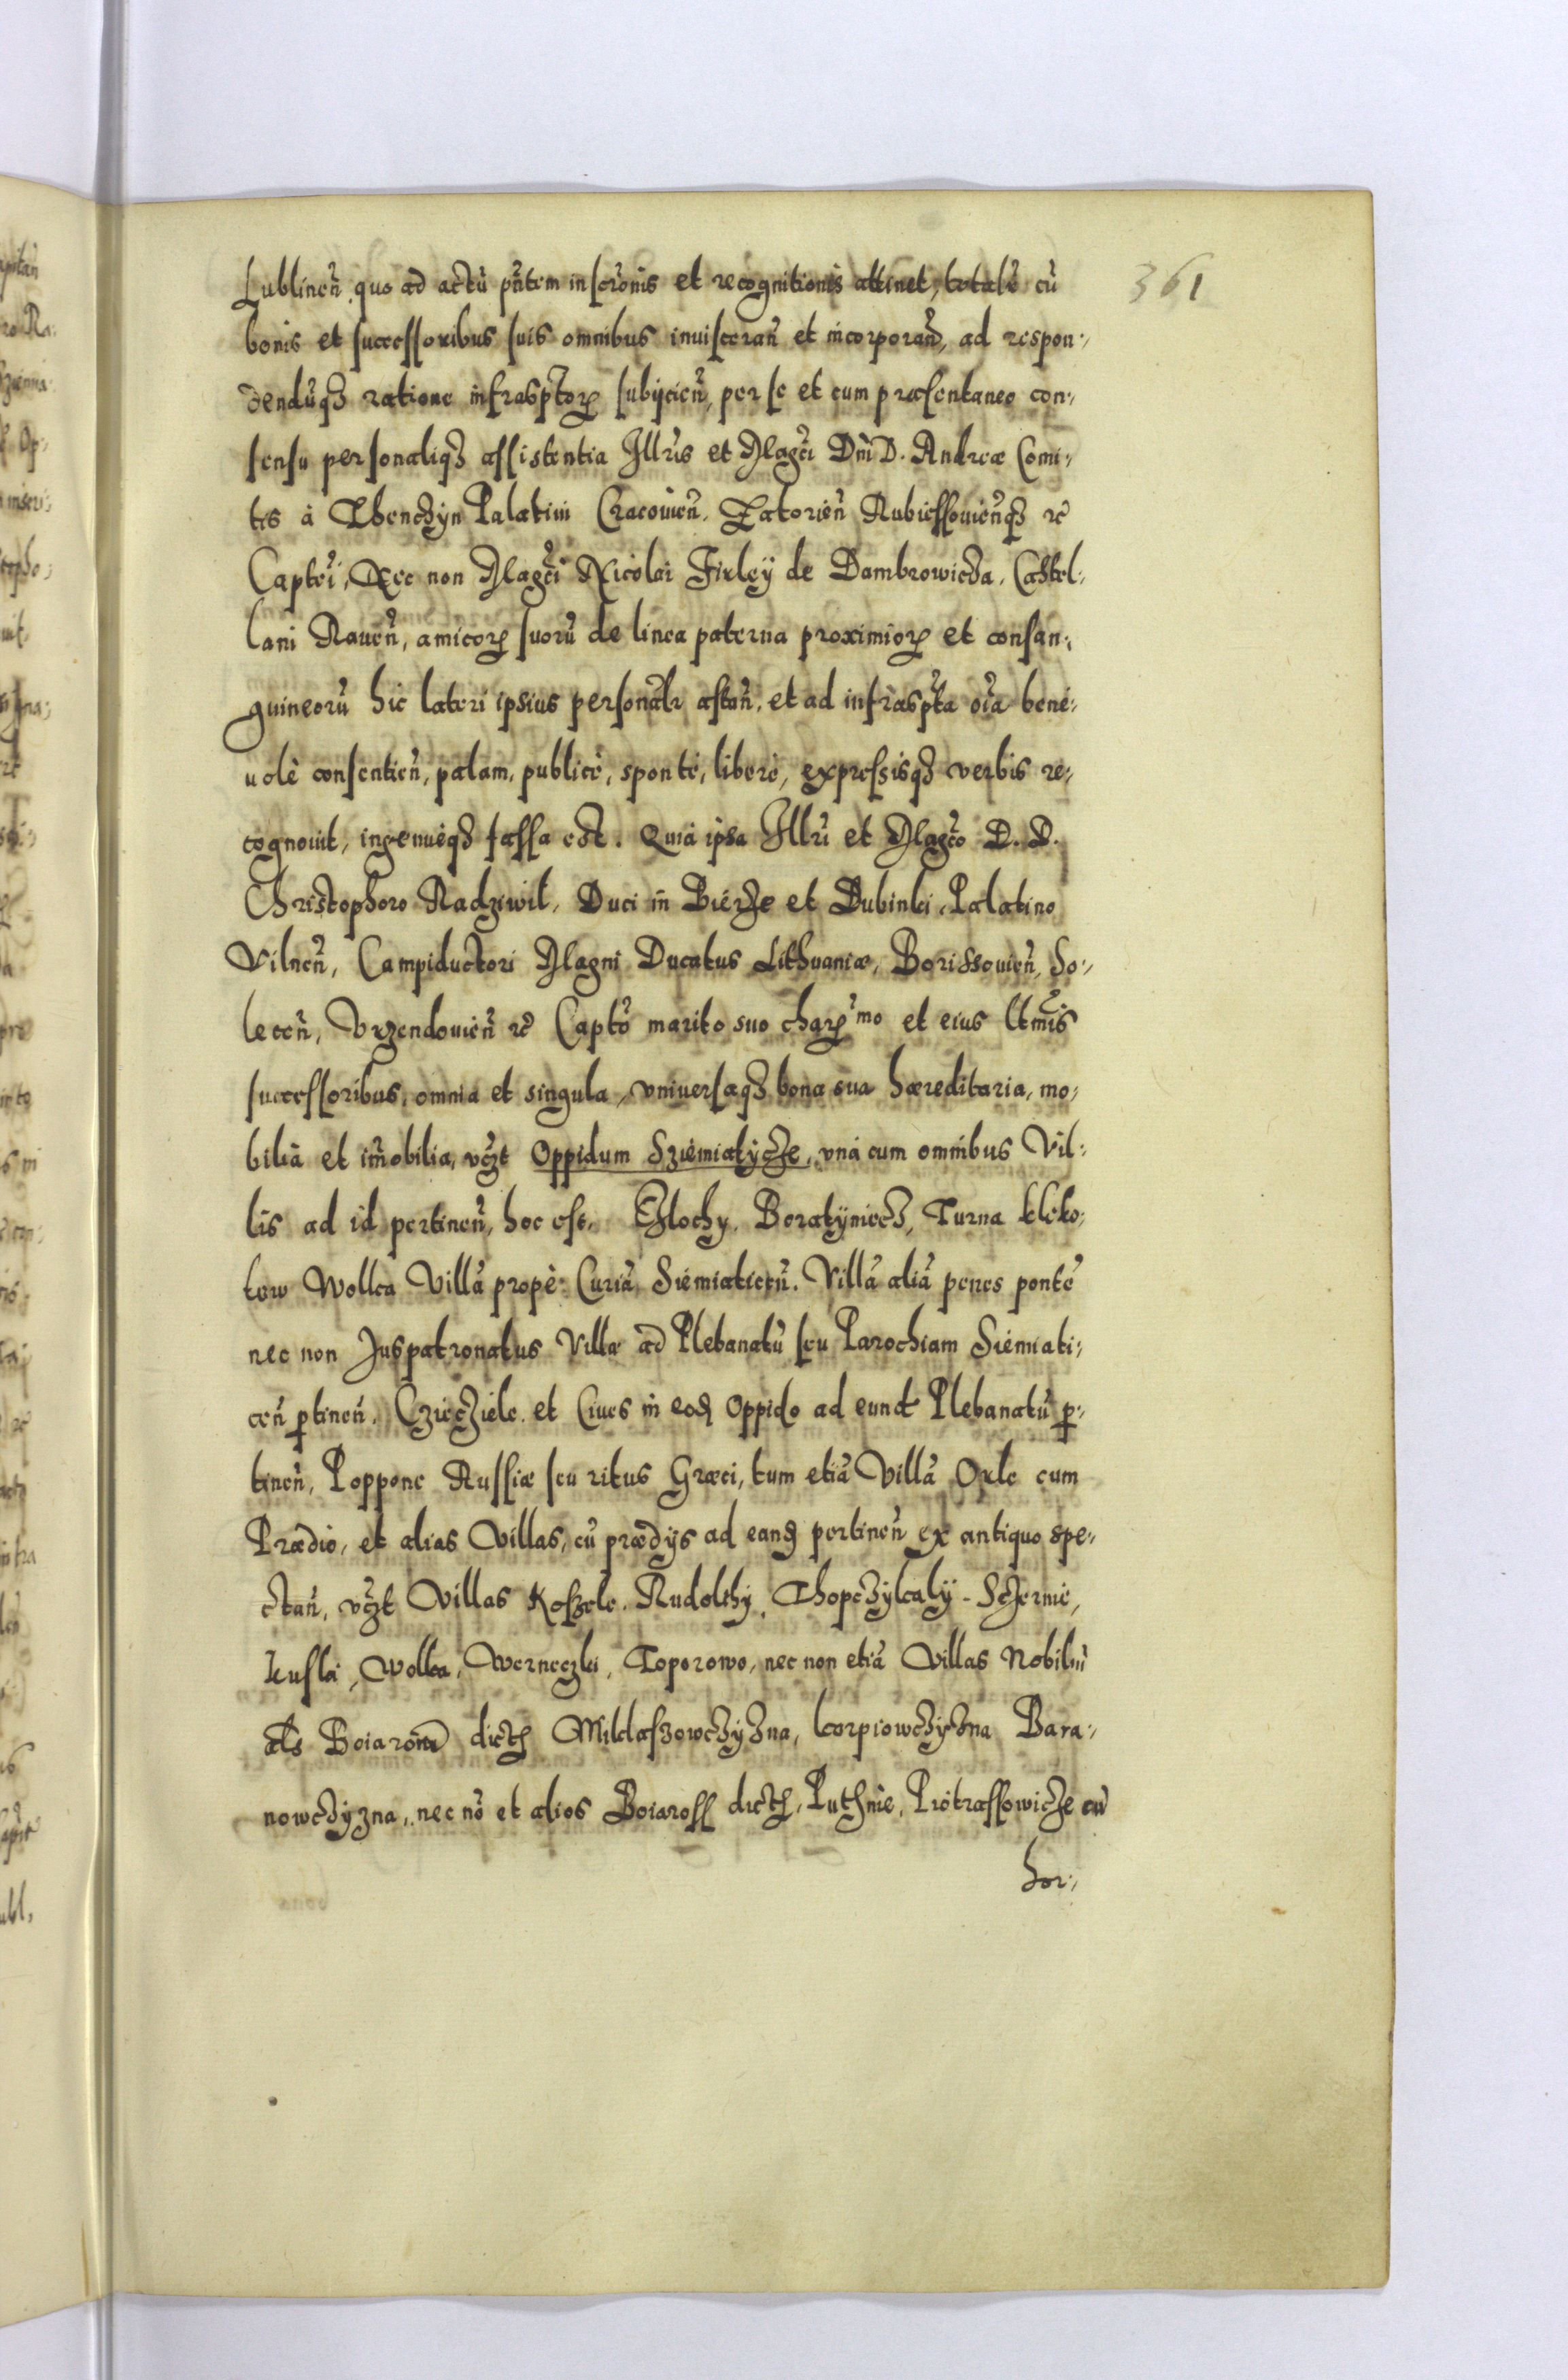 361
Lublineñ quo ad actũ pñtem inscrõnis et recognitionis attinet, totalr̃ cũ
bonis et successoribus suis omnibus inuisceran̄ et incorporan̄, ad respon-
dendũqȝ ratione infrasptorꝝ subijcien̄, per se et cum præsentaneo con-
sensu personaliqȝ assistentia Illr̃is et Magc̃i Dñi D. Andreæ Comi-
tis à Thenczyn Palatini Cracouien̄. Zatorien̄ Rubiessouien̄qȝ ꝛc̃
Captei, Nec non Magc̃i Nicolai Firleÿ de Dambrowicza, Castel-
lani Rauen̄, amicorꝝ suorũ de linea paterna proximiorꝝ et consan-
guineorũ hic lateri ipsius personalr̃ astan̄. et ad infraspta oĩa bene-
uolè consentien̄, palam, publicè, spontè, liberè, expressisqȝ verbis re-
cognouit, ingenuèqȝ fassa est. Quia ipsa Illr̃i et Magc̃o D. D.
Christophoro Radziwil, Duci in Bierże et Dubinki, Palatino
Vilnen̄, Campiductori Magni Ducatus Lithuaniæ, Borissouien̄, So-
lecen̄, Vrzendouien̄ ꝛc̃ Captõ marito suo charꝝmo et eius ltmis
successoribus, omnia et singula, vniuersaqȝ bona sua hæreditaria, mo-
bilia et im̃obilia, vcȝt Oppidum Sziemiatycże, vnà cum omnibus Vil-
lis ad id pertinen̄, hoc est, Czlochy. Boratÿniecȝ, Turna kleko-
tow Wolka Villã propè Curiã Siemiaticen̄. Villã aliã penes pontẽ
nec non Juspatronatus Villæ ad Plebanatũ seu Parochiam Siemiati-
cen̄ ꝑtinen̄. Cziecziele. et Ciues in eoḋ Oppido ad eund̃ Plebanatũ ꝑ-
tinen̄, Poppone Russiæ seu ritus Græci, tum etiã Villã Oxle cum
Prædio, et alias Villas, cũ prædijs ad eanḋ pertinen̄ ex antiquo spe-
ctan̄, vcȝt Villas Koszele. Rudolthy, Thopczylcalÿ-Sczernie,
kusla, Wolka, Werneczki, Toporowo, nec non etiã Villas Nobiliũ
als Boiarom̃ dictꝝ Miklaszowczyzna, korpiowczyzna Bara-
nowczyzna, nec nõ et alios Boiaross dictꝝ, Puthnie, Piotrassowicże cũ
hor-